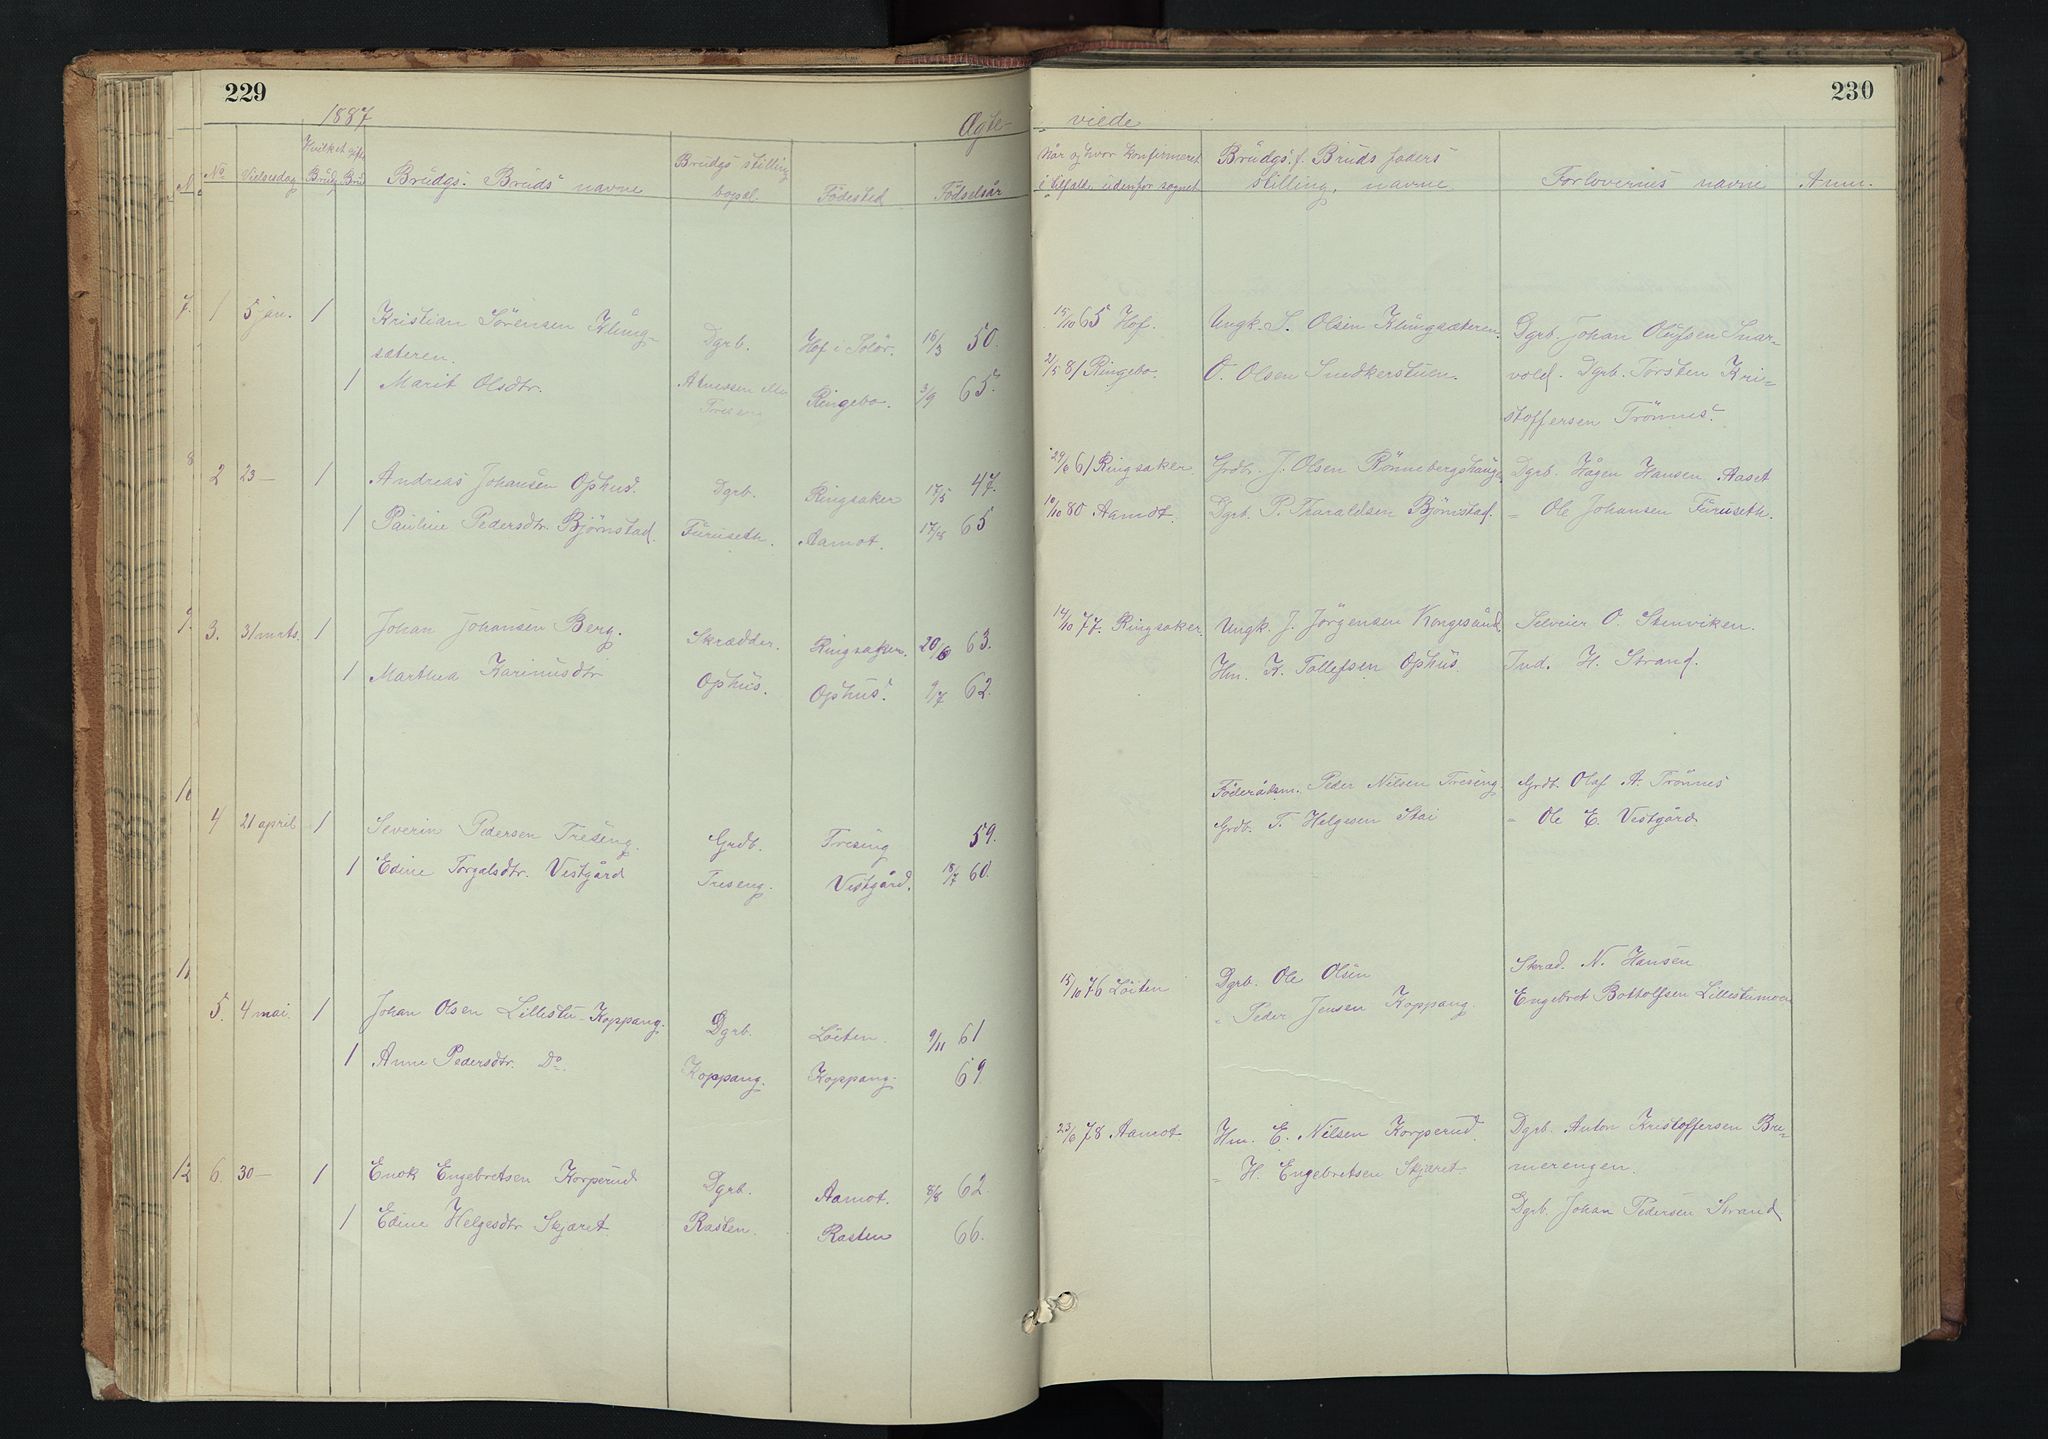 229
1887
Ægte-
N.
No
Vielsesdag
Hvilket gifte
Brudg. Brud
Brudgs. Bruds navne
Brudgs stilling
bopæl.
Födested
Födselsår
7. 1 5 jan. 1 Kristian Sörensen Kling-
sæteren. Dgrb. Hof i Solör. 16/3 50.
1 Marit Olsdtr. Ringebo. 3/9 65.
Treseng
8 2 23 — 1 Andreas Johansen Ophus. Dgrb. Ringsaker 17/5 47.
1 Pauline Pedersdtr. Bjørnstad. Furuseth. Aamot. 17/8 65
9. 3. 31 marts. 1 Johan Johansen Berg. Skrædder. Ringsaker. 20/6 63.
1 Marthea Karinusdtr Ophus. Ophus. 9/7 62.
10
4 21 april 1 Severin Pedersen Treseng. Grdb. Treseng 59.
1 Edine Torgalsdtr. Vestgård Treseng. Vestgård. 18/7 60.
11
5. 4 mai. 1 Johan Olsen Lillestu-Koppang. Dgrb. Löiten 9/11 61
1 Anne Pedersdtr. Do. Koppang. Koppang. 69.
12 6. 30 — 1 Enok Engebretsen Korperud Dgrb. Aamot. 8/8 62.
1 Edine Helgesdtr Skjæret Rasten. Rasten 66.
230
viede
Når og hvor konfirmeret
i tilfælde udenfor sognet
Brudgs. f. Bruds faders
stilling, navne
Forlovernes navne
Anm.
15/10 65 Hof. Ungk. S. Olsen Klingsæteren. Dgrb. Johan Olufsen Snar-
2/5 81 Ringebo. O. Olsen Snedkerstuen. vold. Dgrb. Torsten Kri-
stoffersen Trönnes.
29/6 61 Ringsaker Grdbr. J. Olsen Rönnebergshauge Dgrb. Hågen Hansen Aaset
10/10 80 Aamot. Dgrb. P. Tharaldsen Bjørnstad. " Ole Johansen Furuseth.
14/10 77. Ringsaker. Ungk. J. Jörgensen Kongesund. Selveier O. Stenviken.
Hm. K. Tollefsen Ophus. Ind. H. Strand.
Föderåksm. Peder Nilsen Treseng. Grdb. Olaf A. Trönnes
Grdb. T. Helgesen Stai " Ole E. Vestgård
15/10 76 Löiten Dgrb. Ole Olsen Skræd. N. Hansen
" Peder Jensen Koppang. Engebret Bottolfsen Lillestumoen
23/6 78 Aamot Hm. E. Nilsen Korperud. Dgrb. Anton Kristoffersen Bre-
" H. Engebretsen Skjæret merengen.
Dgrb. Johan Pedersen Strand